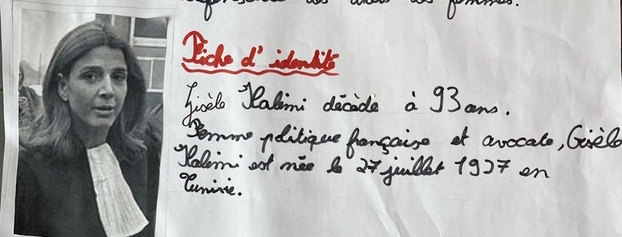 des droits des femmes.
Fiche d'identité
Gisèle Halimi décède à 93 ans.
Femme politique française et avocate, Gisèle
Halimi est née le 27 juillet 1927 en
Tunisie.